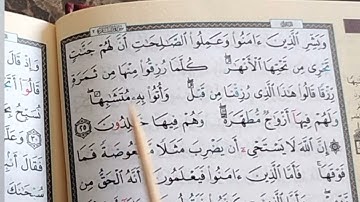 وَبَشِّرِ الَّذِينَ ءَامَنُوا وَعَمِلُوا الصَّٰلِحَٰتِ أَنَّ لَهُمْ جَنَّٰتٍ
تَجْرِي مِن تَحْتِهَا الْأَنْهَٰرُ كُلَّمَا رُزِقُوا مِنْهَا مِن ثَمَرَةٍ
رِّزْقًا قَالُوا هَٰذَا الَّذِي رُزِقْنَا مِن قَبْلُ وَأُتُوا بِهِ مُتَشَٰبِهًا
وَلَهُمْ فِيهَا أَزْوَٰجٌ مُّطَهَّرَةٌ وَهُمْ فِيهَا خَٰلِدُونَ ٢٥
إِنَّ اللَّهَ لَا يَسْتَحْيِ أَن يَضْرِبَ مَثَلًا مَّا بَعُوضَةً فَمَا
فَوْقَهَا فَأَمَّا الَّذِينَ ءَامَنُوا فَيَعْلَمُونَ أَنَّهُ الْحَقُّ مِن
وَإِذْ قَالَ
قَالُوا
نُسَبِّحُ بِحَمْدِ
وَعَلَّمَ
فَقَالَ
سُبْحَٰنَكَ